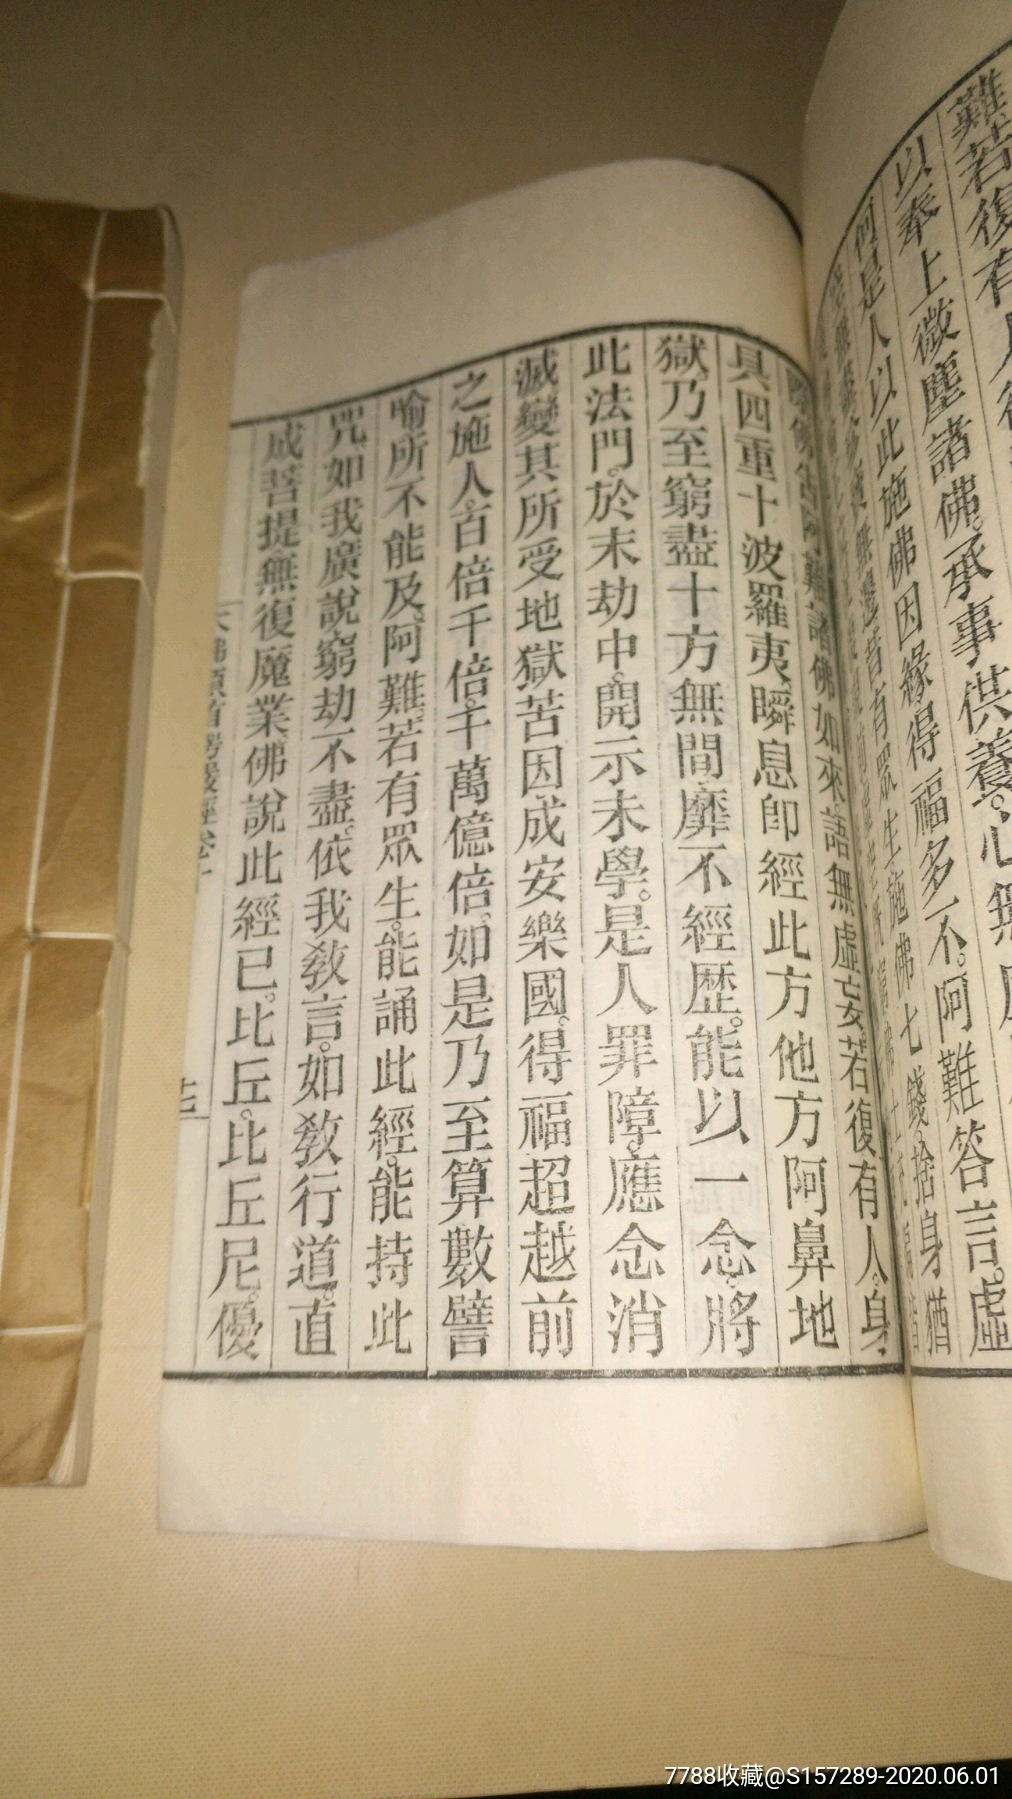 難若復有
以奉上微塵諸佛。承事供養。心無
何是人以此施佛因緣得福多不。阿難答言。虛
眾生施佛七錢。捨身猶
難。諸佛如來。語無虛妄。若復有人。身
具四重十波羅夷。瞬息即經此方他方阿鼻地
獄。乃至窮盡十方無間。靡不經歷。能以一念。將
此法門。於末劫中。開示未學。是人罪障。應念消
滅。變其所受地獄苦因。成安樂國。得福超越前
之施人。百倍千倍。千萬億倍。如是乃至算數譬
喻所不能及。阿難。若有眾生。能誦此經。能持此
咒。如我廣說。窮劫不盡。依我教言。如教行道。直
成菩提。無復魔業。佛說此經已。比丘。比丘尼。優
七
7788收藏@S157289-2020.06.01